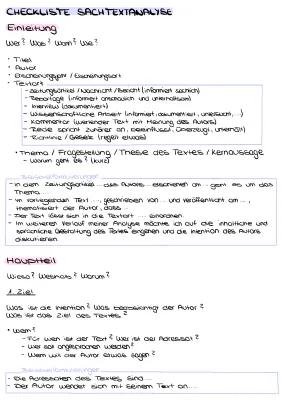 CHECKLISTE SACHTEXTANALYSE
Einleitung
Wer? Was? Wann? Wie?
• Titel
• Autor
• Erscheinungsjahr / Erscheinungsort
• Textart
- Zeitungsartikel / Nachricht / Bericht (informiert sachlich)
- Reportage (informiert anschaulich und unterhaltsam)
- Interview (dokumentiert)
- Wissenschaftliche Arbeit (informiert, dokumentiert, untersucht, ...)
- Kommentar (wertender Text mit Meinung des Autors)
- Rede spricht Zuhörer an (beeinflusst, überzeugt, unterhält)
- Richtlinie / Gesetz (regelt etwas)
• Thema / Fragestellung / These des Textes / Kernaussage
- Worum geht es? (kurz)
- In dem Zeitungsartikel ... des Autors ... erschienen am ... geht es um das
Thema ...
- Im vorliegenden Text ..., geschrieben von ... und veröffentlicht am ...,
thematisiert der Autor, dass ...
- Der Text lässt sich in die Textart ... einordnen.
- Im weiteren Verlauf meiner Analyse möchte ich auf die inhaltliche und
sprachliche Gestaltung des Textes eingehen und die Intention des Autors
diskutieren.
Hauptteil
Wieso? Weshalb? Warum?
1. Ziel
Was ist die Intention? Was beabsichtigt der Autor?
Was ist das Ziel des Textes?
• Wem?
- Für wen ist der Text? Wer ist der Adressat?
- Wer soll angesprochen werden?
- Wem will der Autor etwas sagen?
- Die Adressaten des Textes sind ...
- Der Autor wendet sich mit seinem Text an ...